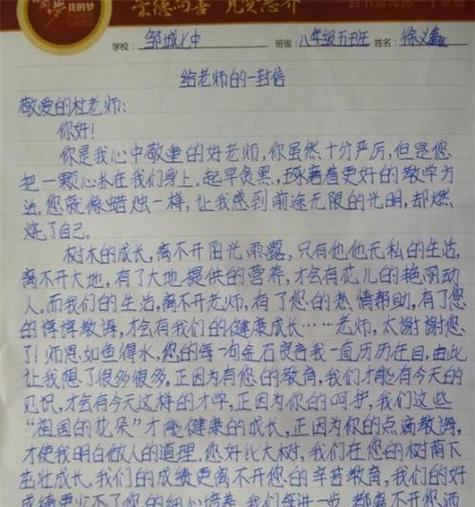 我的梦 崇德向善 见贤思齐
学校: 邹城八中 班级: 八年级五班 姓名: 徐义鑫
给老师的一封信
敬爱的杜老师:
你好!
你是我心中敬重的好老师,你虽然十分严厉,但是您
把一颗心扑在我们身上。起早贪黑,琢磨着更好的教学方
法。您就像蜡烛一样,让我感到前途无限的光明,却燃
烧了自己。
树木的成长,离不开阳光雨露,只有他他无私的生活,
离不开大地,有了大地提供的营养,才会有花儿的艳丽动
人。而我们的生活,离不开老师,有了您的热情帮助,有了您
的谆谆教诲,才会有我们的健康成长……老师,太谢谢您
了!师恩如鱼得水,您的每一句金石良言我一直历历在目,由此
让我想了很多很多,正因为有您的教育,我们才能有今天的
见识,才会有今天这样的才学,正因为你的呵护,我们这些
“祖国的花朵”才能健康的成长,正因为你的点滴教诲,
才使我明白做人的道理。您好比大树,我们在您的树荫下
茁壮成长。我们的成绩更离不开您的辛苦教育,我们的好
成绩更少不了您的细心培养,我们每进一步,都离不开您